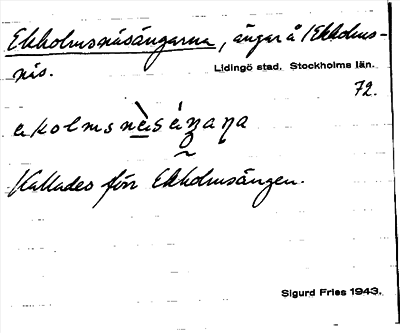 Ekholmsnäsängarna, ängar å /Ekholms-
näs. Lidingö stad. Stockholms län.
72.
Kallades förr Ekholmsängen.
Sigurd Fries 1943.